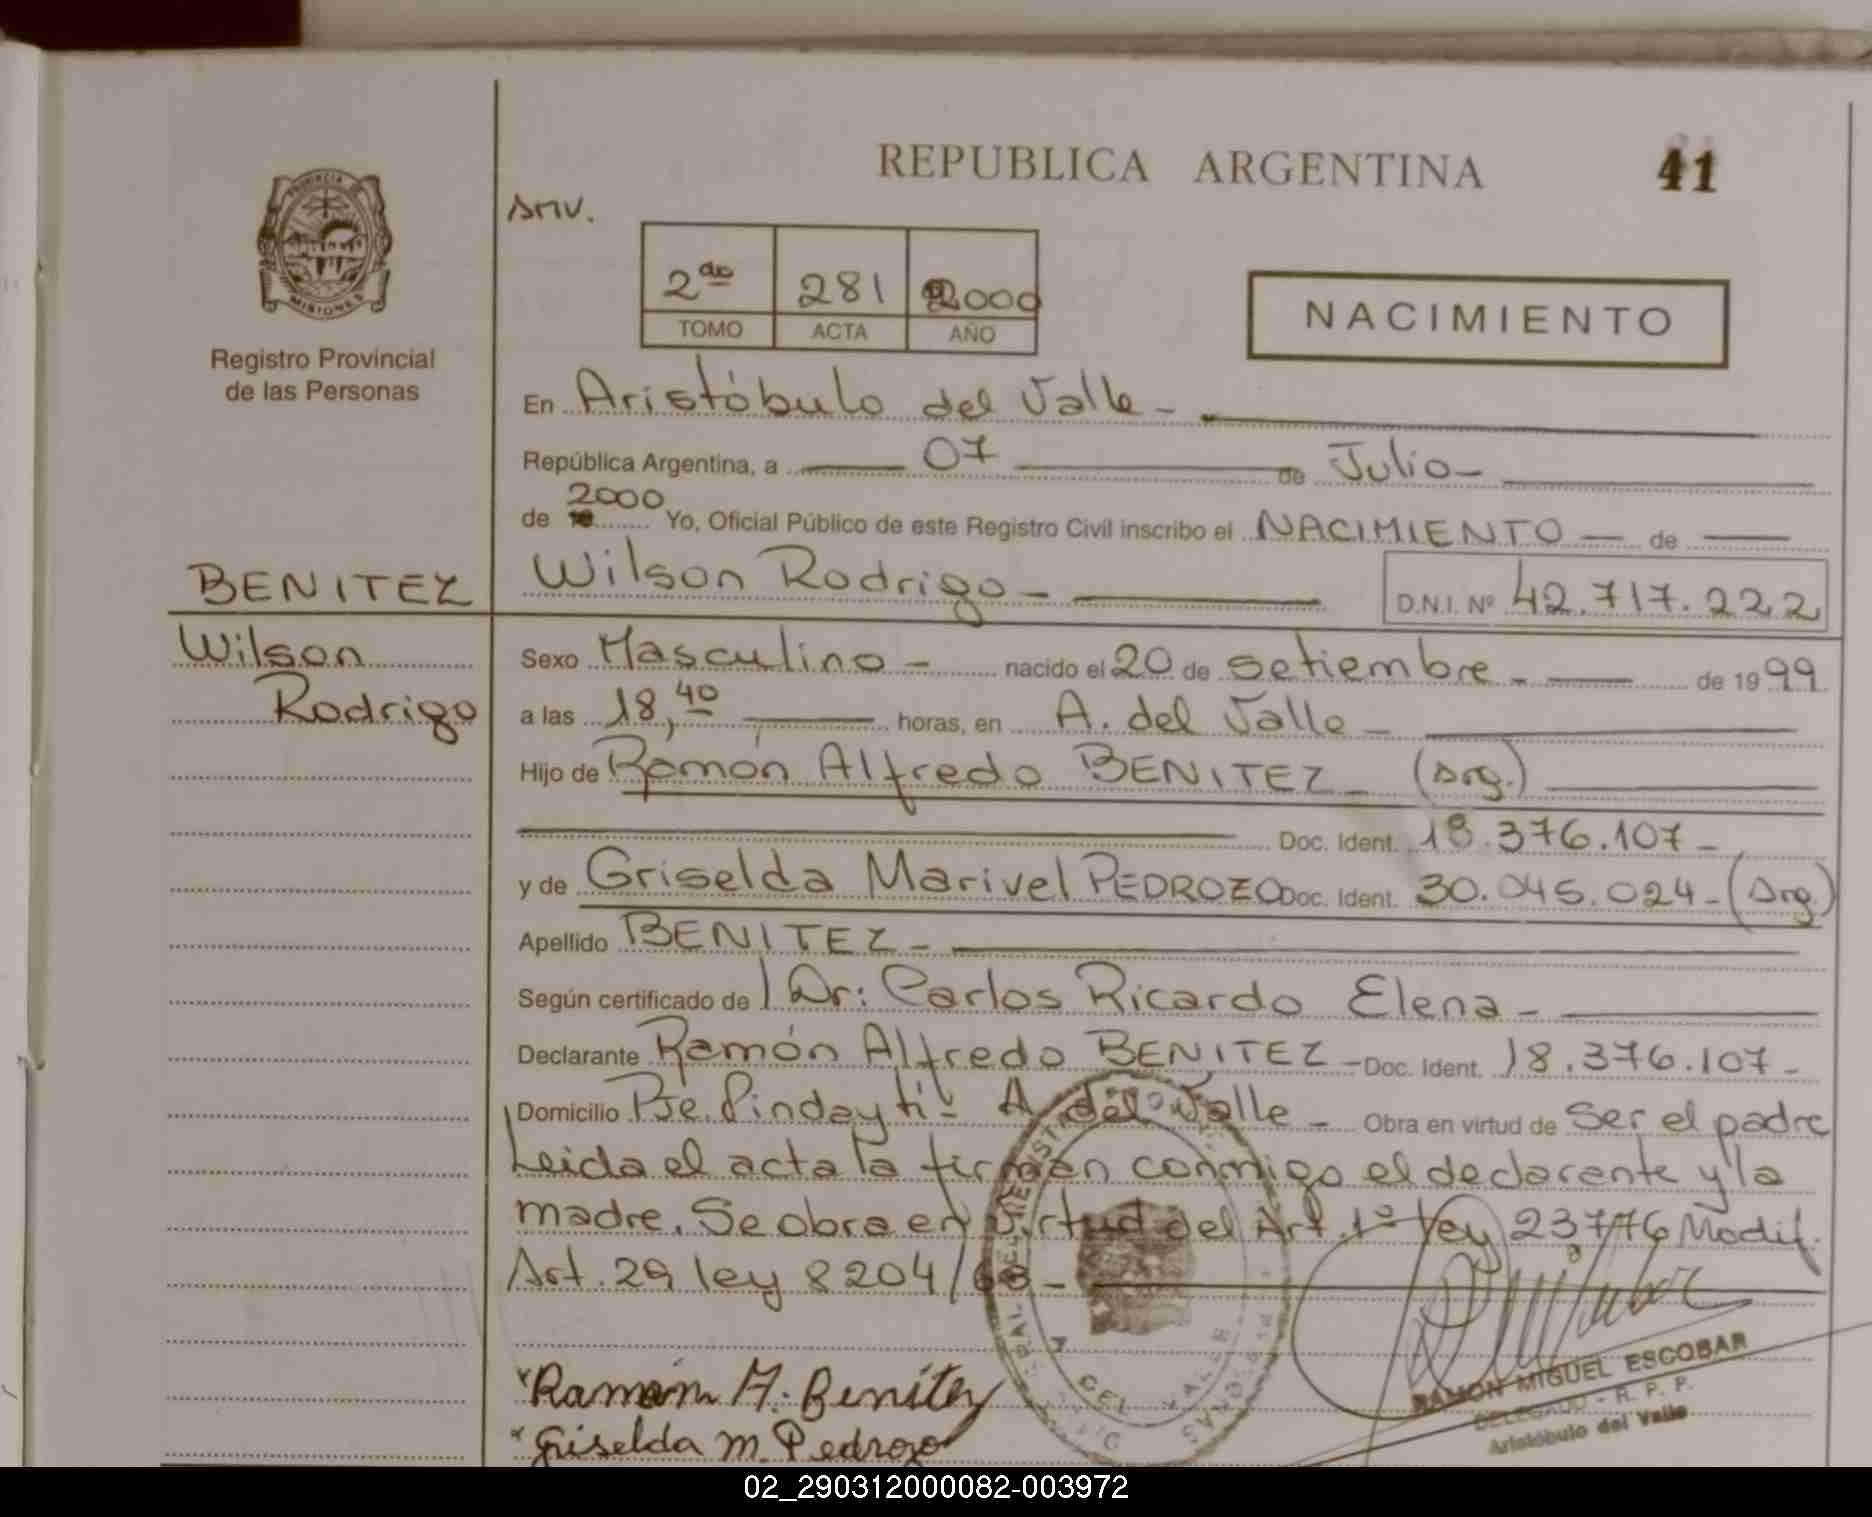 REPUBLICA ARGENTINA
41
PROVINCIA DE
MISIONES
Registro Provincial
de las Personas
2do 281 2000
TOMO ACTA AÑO
NACIMIENTO
En Aristóbulo del Valle -
República Argentina, a 07 de Julio -
de 2000 Yo, Oficial Público de este Registro Civil inscribo el NACIMIENTO de
BENITEZ
Wilson Rodrigo -
D.N.I. Nº 42.717.222
Wilson
Rodrigo
Sexo Masculino - nacido el 20 de setiembre - de 1999
a las 18,40 horas, en A. del Valle -
Hijo de Ramón Alfredo BENITEZ - (Arg.)
Doc. Ident. 18.376.107 -
y de Griselda Marivel PEDROZO Doc. Ident. 30.045.024 - (Arg)
Apellido BENITEZ -
Según certificado de Dr: Carlos Ricardo Elena -
Declarante Ramón Alfredo BENITEZ - Doc. Ident. 18.376.107 -
Domicilio Pje. Pindayti - A. del Valle - Obra en virtud de Ser el padre
Leida el acta la firman conmigo el declarante y la
madre. Se obra en virtud del Art. 1º ley 23776 Modif.
Art. 29 ley 8204/63 -
Ramón A. Benítez
Griselda M. Pedrozo
RAMON MIGUEL ESCOBAR
DELEGADO - R. P. P.
Aristóbulo del Valle
02_290312000082-003972